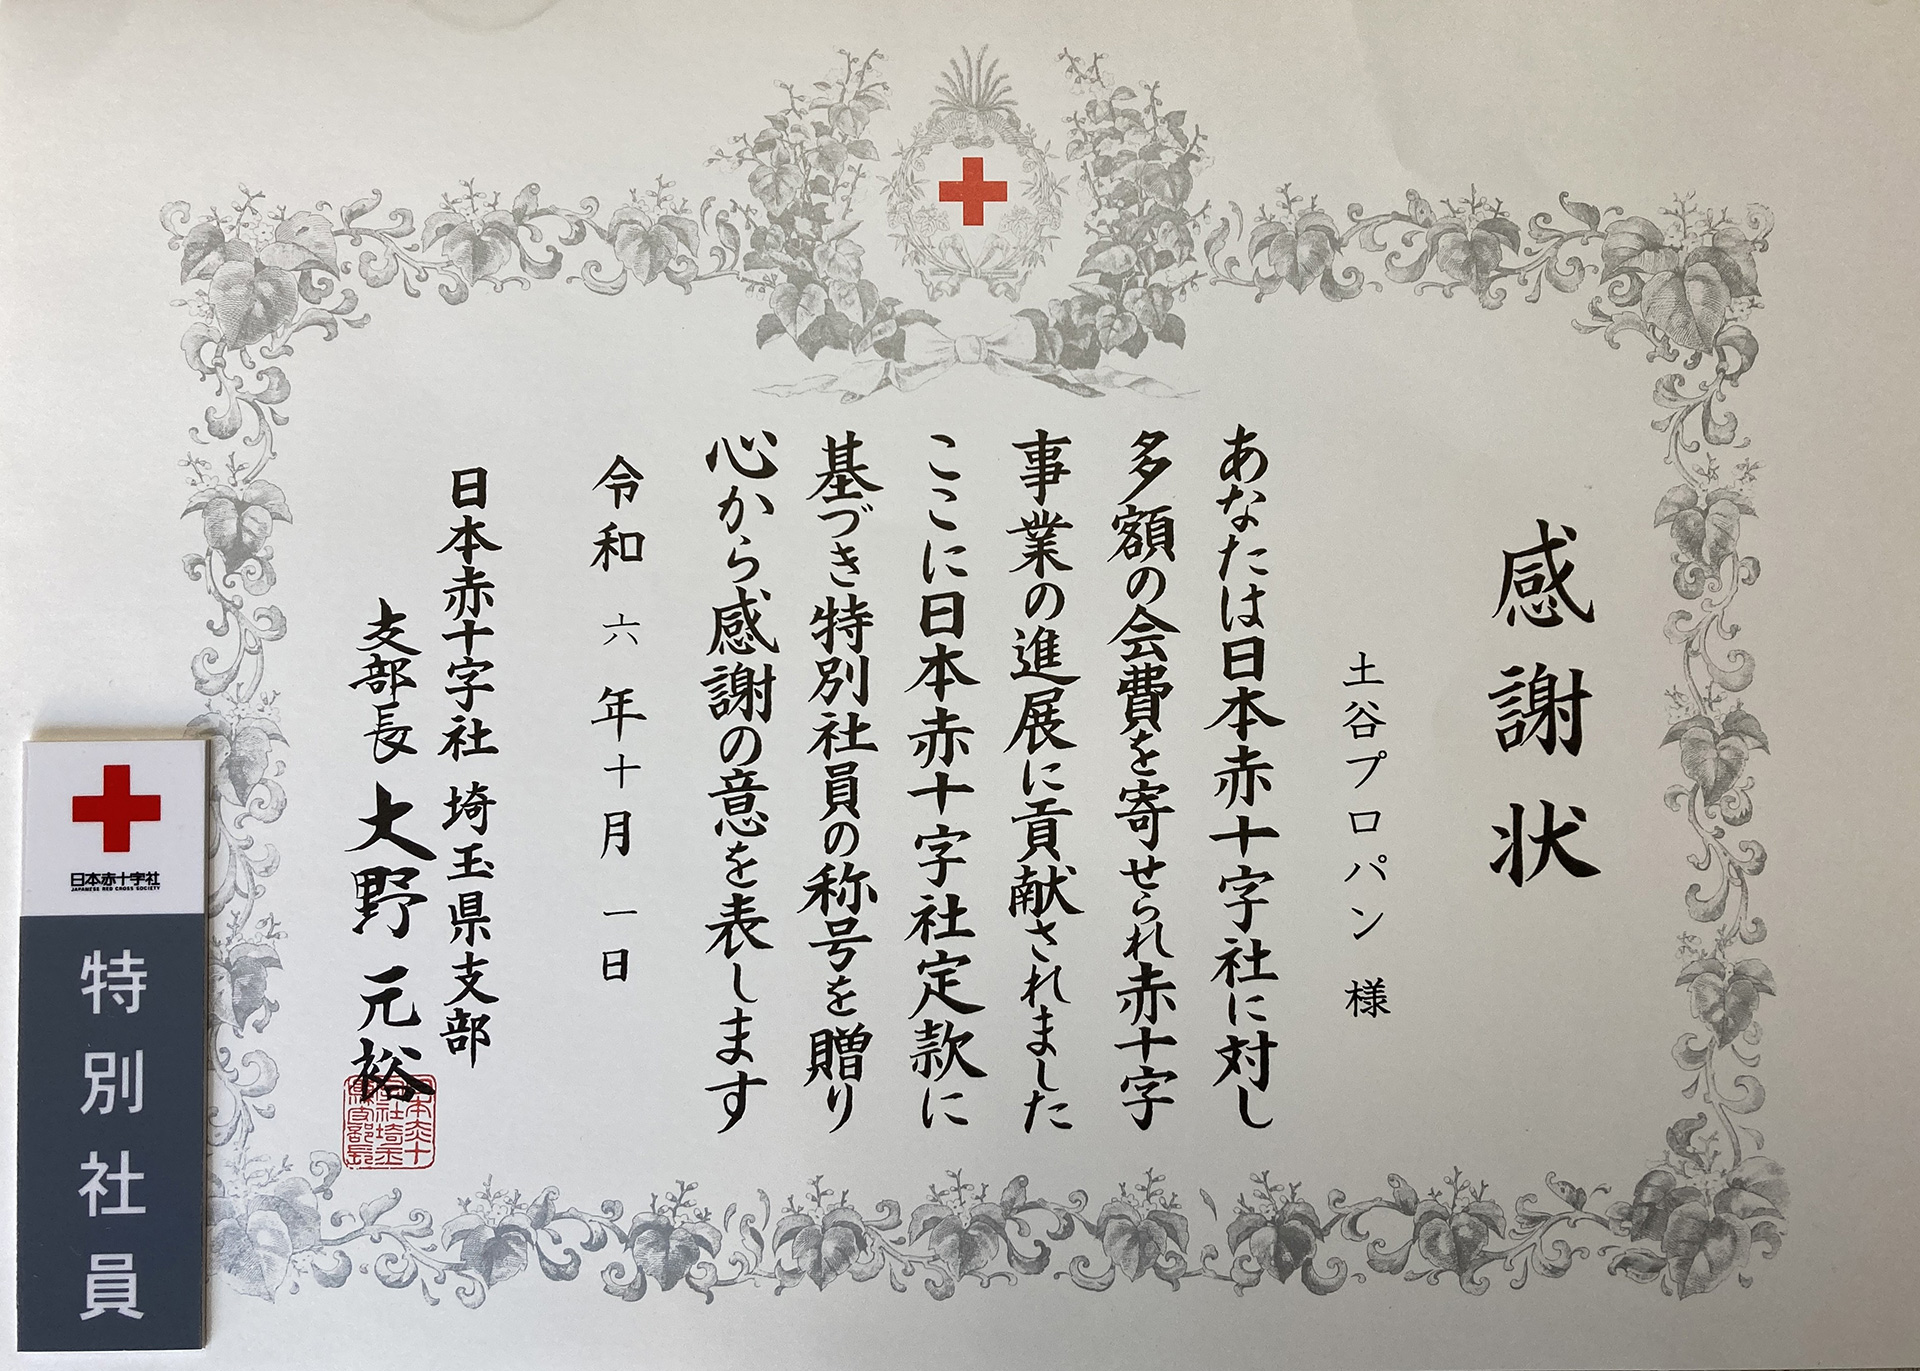 感謝状
土谷プロパン 様
あなたは日本赤十字社に対し
多額の会費を寄せられ赤十字
事業の進展に貢献されました
ここに日本赤十字社定款に
基づき特別社員の称号を贈り
心から感謝の意を表します
令和 六 年 十 月 一 日
日本赤十字社 埼玉県支部
支部長 大野 元裕
日本赤十字社
JAPANESE RED CROSS SOCIETY
特別社員